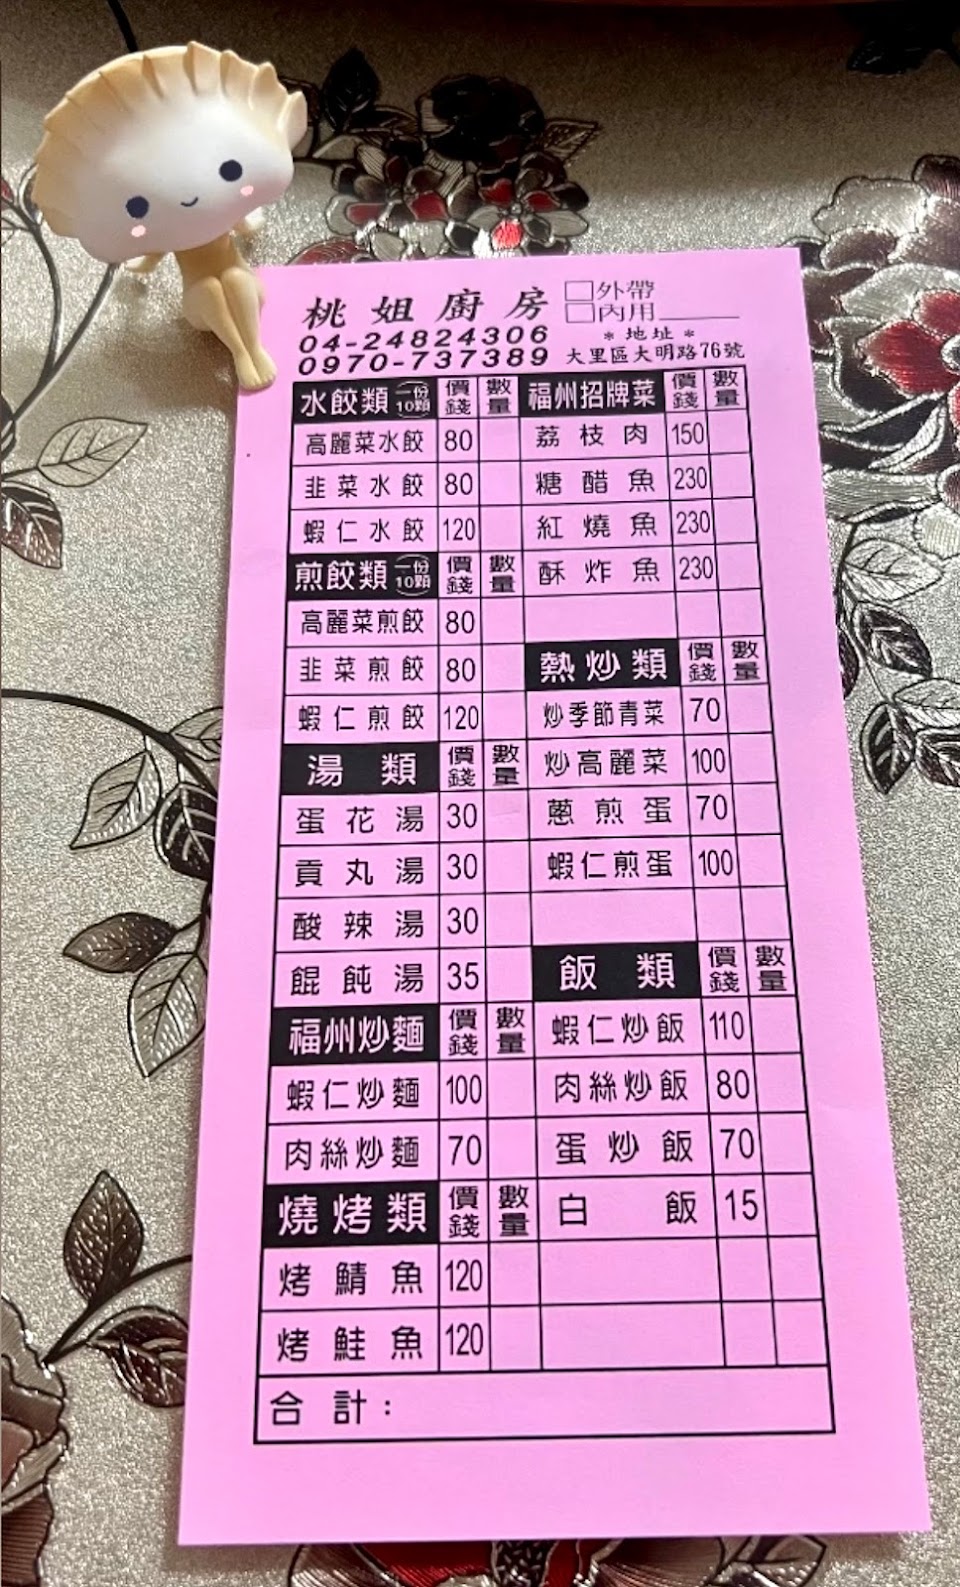 桃姐廚房
□外帶
□內用
04-24824306
0970-737389
＊地址＊
大里區大明路76號
水餃類 一份10顆 價錢 數量
高麗菜水餃 80
韭菜水餃 80
蝦仁水餃 120
煎餃類 一份10顆 價錢 數量
高麗菜煎餃 80
韭菜煎餃 80
蝦仁煎餃 120
湯類 價錢 數量
蛋花湯 30
貢丸湯 30
酸辣湯 30
餛飩湯 35
福州炒麵 價錢 數量
蝦仁炒麵 100
肉絲炒麵 70
燒烤類 價錢 數量
烤鯖魚 120
烤鮭魚 120
福州招牌菜 價錢 數量
荔枝肉 150
糖醋魚 230
紅燒魚 230
酥炸魚 230
熱炒類 價錢 數量
炒季節青菜 70
炒高麗菜 100
蔥煎蛋 70
蝦仁煎蛋 100
飯類 價錢 數量
蝦仁炒飯 110
肉絲炒飯 80
蛋炒飯 70
白飯 15
合計：